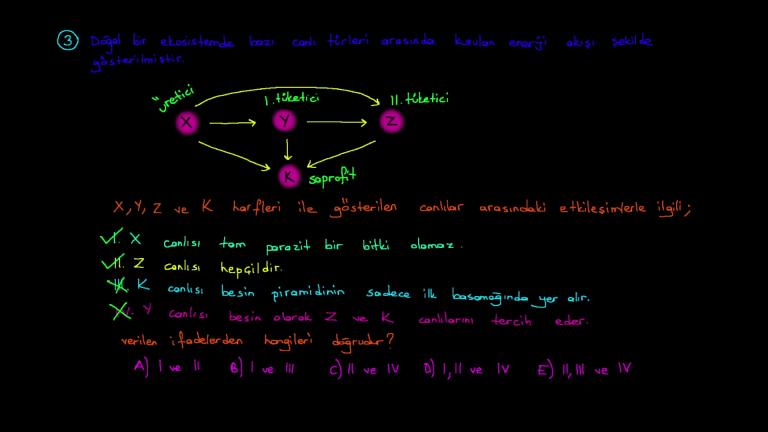 3 Doğal bir ekosistemde bazı canlı türleri arasında kurulan enerji akışı şekilde
gösterilmiştir.
üretici I. tüketici II. tüketici
X Y Z
K saprofit
X, Y, Z ve K harfleri ile gösterilen canlılar arasındaki etkileşimlerle ilgili;
I. X canlısı tam parazit bir bitki olamaz.
II. Z canlısı hepçildir.
III. K canlısı besin piramidinin sadece ilk basamağında yer alır.
IV. Y canlısı besin olarak Z ve K canlılarını tercih eder.
verilen ifadelerden hangileri doğrudur?
A) I ve II B) I ve III C) II ve IV D) I, II ve IV E) II, III ve IV